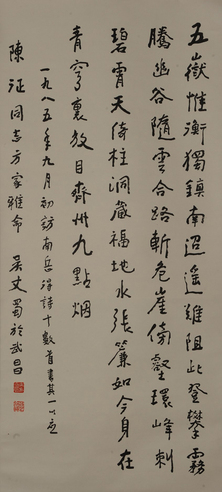 五嶽惟衡獨鎮南迢遥難阻此登攀霧
騰幽谷隨雲合路斬危崖傍壑環峰刺
碧霄天倚柱洞藏福地水張簾如今身在
青穹裏放目齊州九點烟
一九八五年九月初訪南岳得詩十數首書其一以應
陳征同志方家雅命 吴丈蜀於武昌